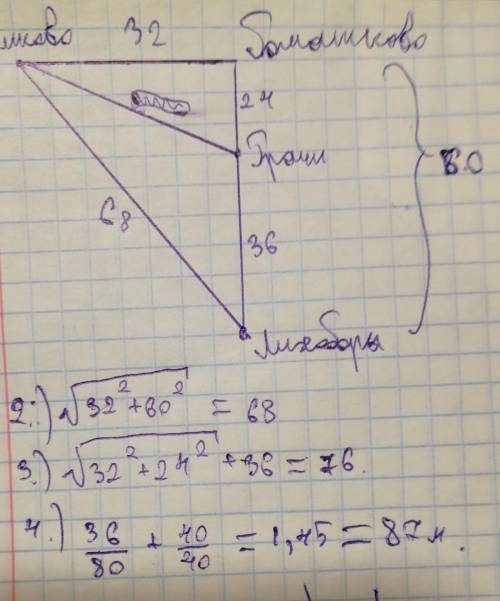 лково 32 Ромашково
24
Грачи
68
36
60
Лихоборы
2.) √32² + 60² = 68
3.) √32² + 24² + 36 = 76.
4.) 36/80 + 40/40 = 1,45 = 87 м.